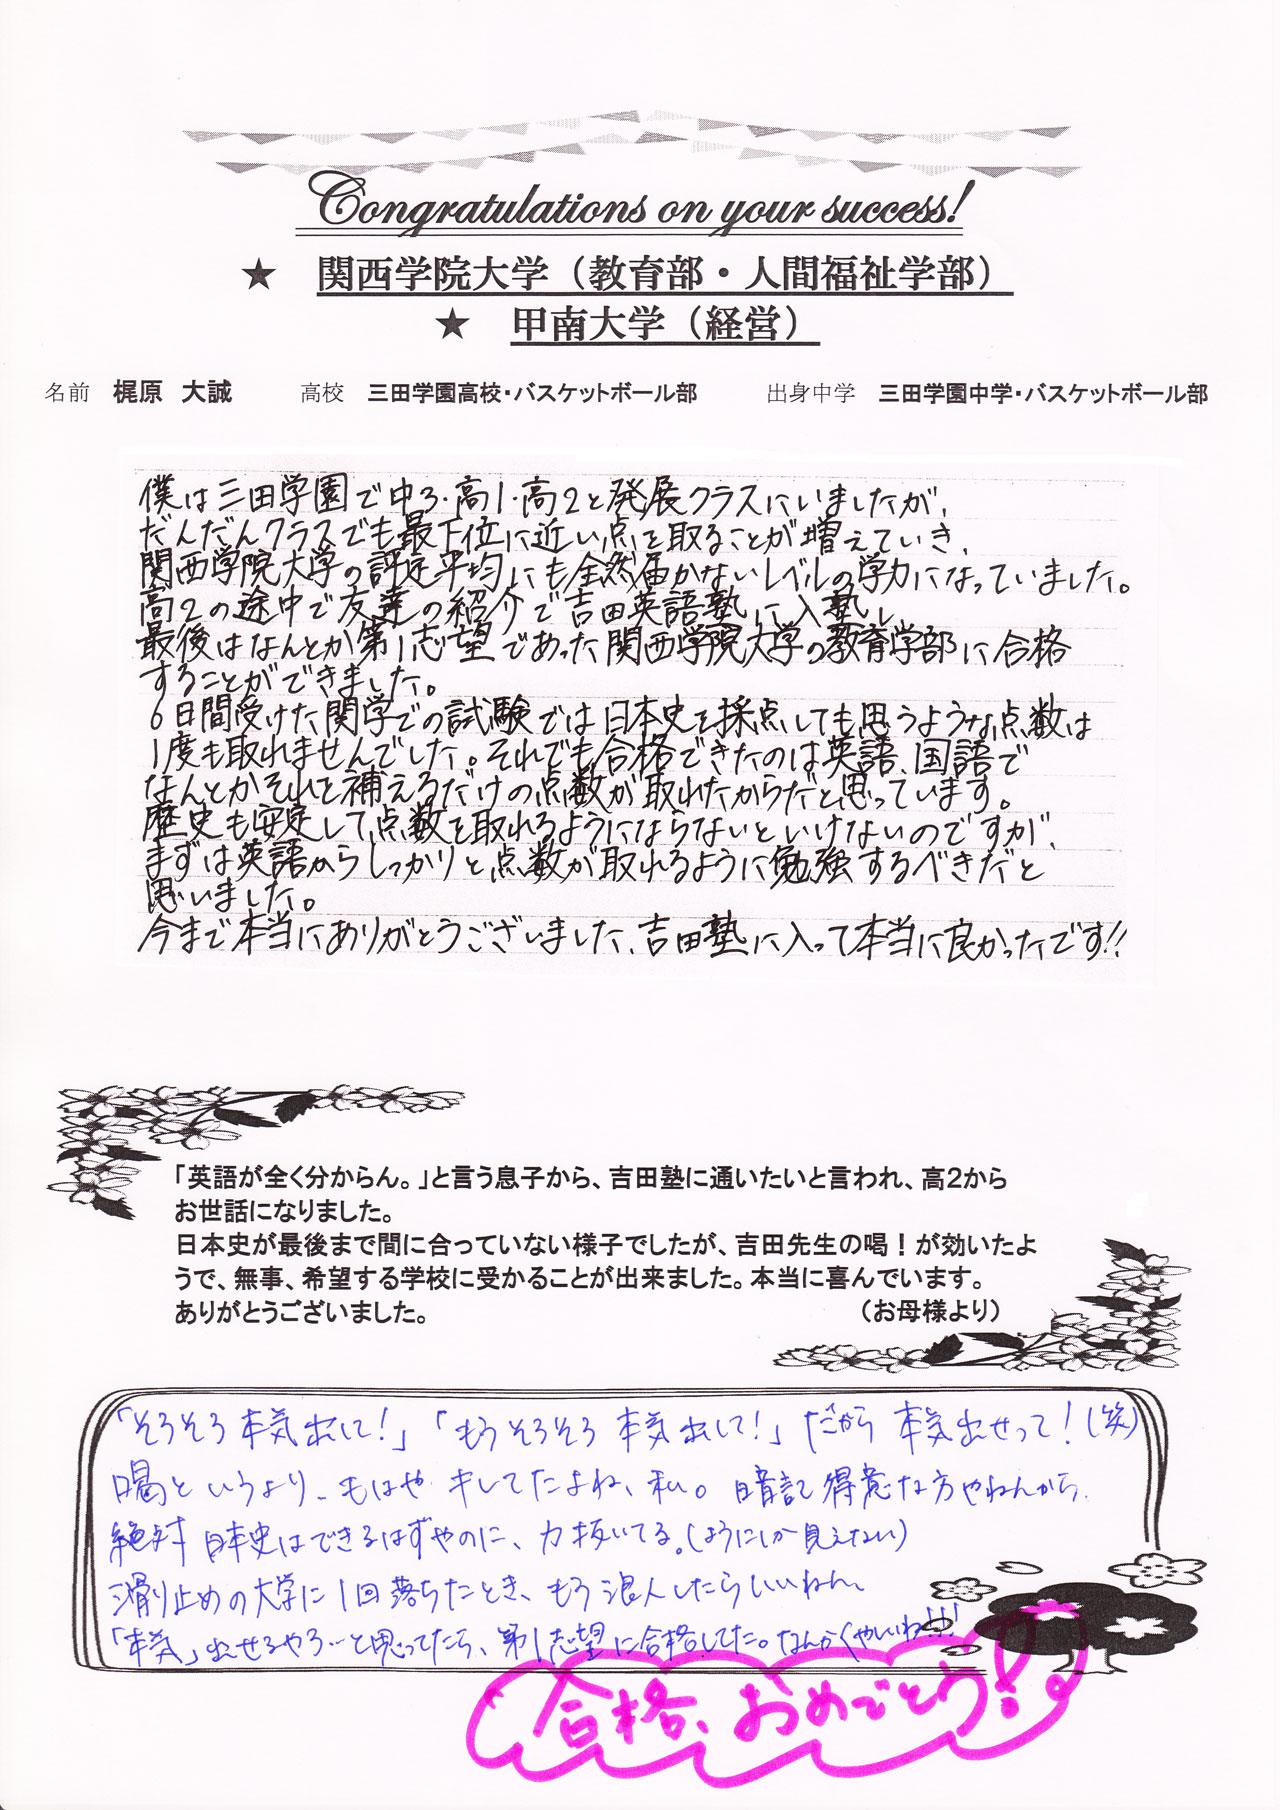 Congratulations on your success!
★ 関西学院大学（教育部・人間福祉学部）
★ 甲南大学（経営）
名前 梶原 大誠 高校 三田学園高校・バスケットボール部 出身中学 三田学園中学・バスケットボール部
僕は三田学園で中3・高1・高2と発展クラスにいましたが、
だんだんクラスでも最下位に近い点を取ることが増えていき、
関西学院大学の評定平均にも全然届かないレベルの学力になっていました。
高2の途中で友達の紹介で吉田英語塾に入塾し
最後はなんとか第1志望であった関西学院大学の教育学部に合格
することができました。
6日間受けた関学での試験では日本史を採点しても思うような点数は
1度も取れませんでした。それでも合格できたのは英語、国語で
なんとかそれを補えるだけの点数が取れたからだと思っています。
歴史も安定して点数を取れるようにならないといけないのですが、
まずは英語からしっかりと点数が取れるように勉強するべきだと
思いました。
今まで本当にありがとうございました、吉田塾に入って本当に良かったです!!
「英語が全く分からん。」と言う息子から、吉田塾に通いたいと言われ、高2から
お世話になりました。
日本史が最後まで間に合っていない様子でしたが、吉田先生の喝！が効いたよ
うで、無事、希望する学校に受かることが出来ました。本当に喜んでいます。
ありがとうございました。 （お母様より）
「そろそろ本気出して！」「もうそろそろ本気出して！」だから本気出せって！(笑)
喝というより、もはやキレてたよね、私。暗記得意な方やねんから、
絶対日本史はできるはずやのに、力抜いてる。(ようにしか見えない)
滑り止めの大学に1回落ちたとき、もう浪人したらいいねん。
「本気」出せるやろ…と思ってたら、第1志望に合格してた。なんかくやしいね!!!
合格、おめでとう!!